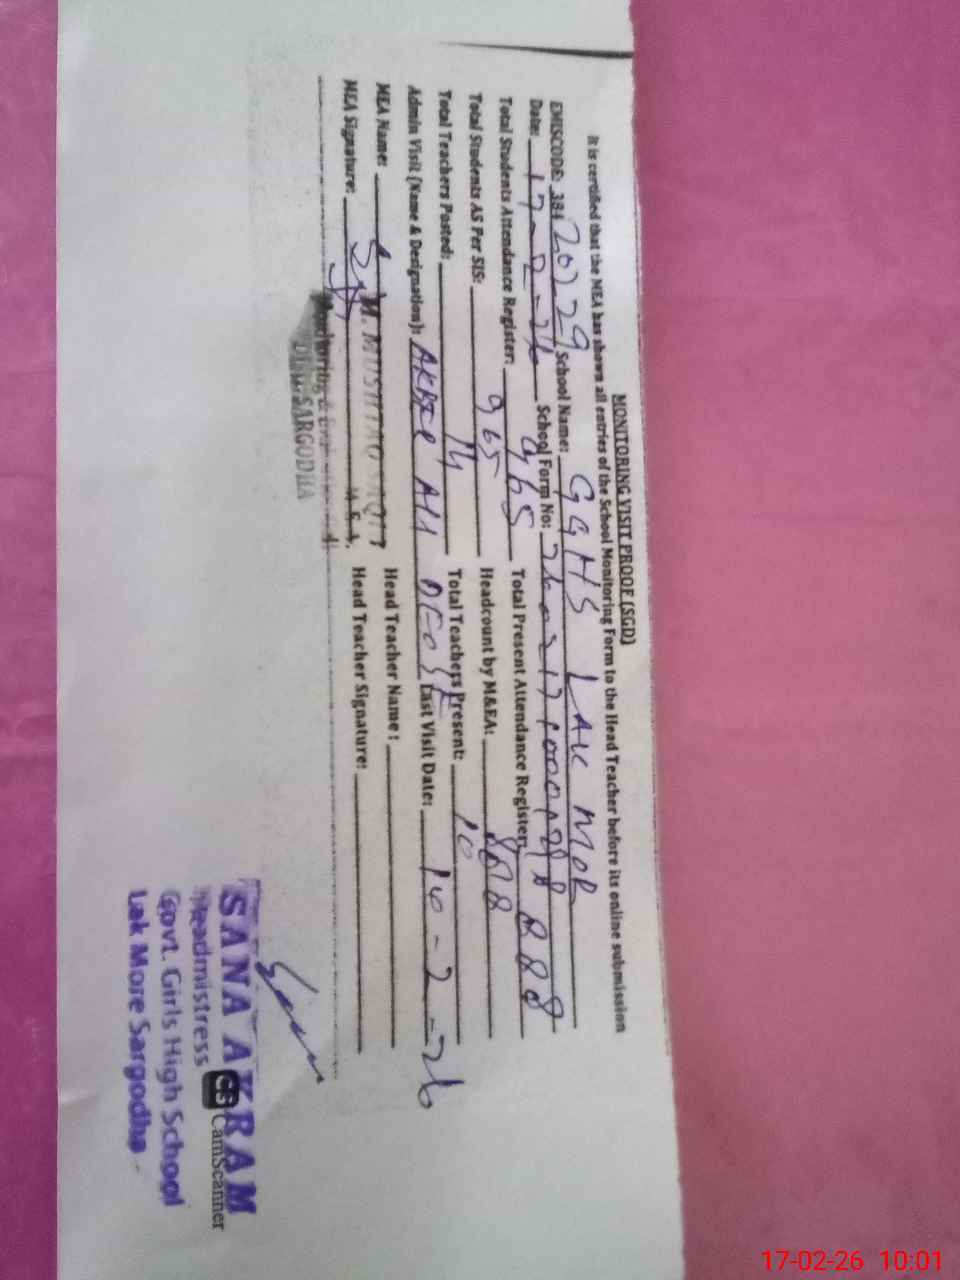 MONITORING VISIT PROOF (SGD)
It is certified that the MEA has shown all entries of the School Monitoring Form to the Head Teacher before its online submission
EMISCODE: 384 20229 School Name: GGHS LAK MOR
Date: 17-2-26 School Form No:
Total Students Attendance Register: 965 Total Present Attendance Register: 888
Total Students AS Per SIS: 965 Headcount by M&EA: 888
Total Teachers Posted: 14 Total Teachers Present: 10
Admin Visit (Name & Designation): AKBER Ali DEO SE Last Visit Date: 10-2-26
MEA Name: M. MUSHTAQ Head Teacher Name:
MEA Signature: Head Teacher Signature:
M.E.A.
Monitoring &
SARGODHA
SANA AKRAM
Headmistress
Govt. Girls High School
Lak More Sargodha
CS CamScanner
17-02-26 10:01